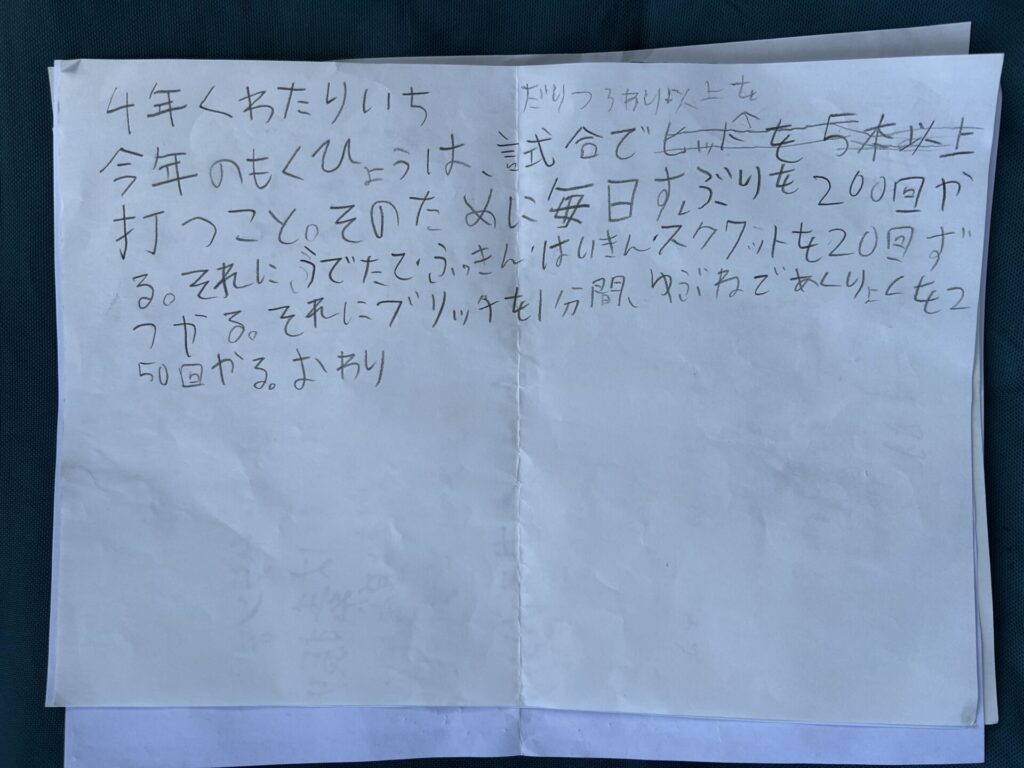 4年くわたりいち
だりつ3わり以上を
今年のもくひょうは、試合でヒットを5本以上
打つこと。そのために毎日すぶりを200回か
る。それに、うでたて・ふっきん・はいきん・スクワットを20回ず
つかる。それにブリッチを1分間、ゆぶねであくりょくを2
50回やる。おわり